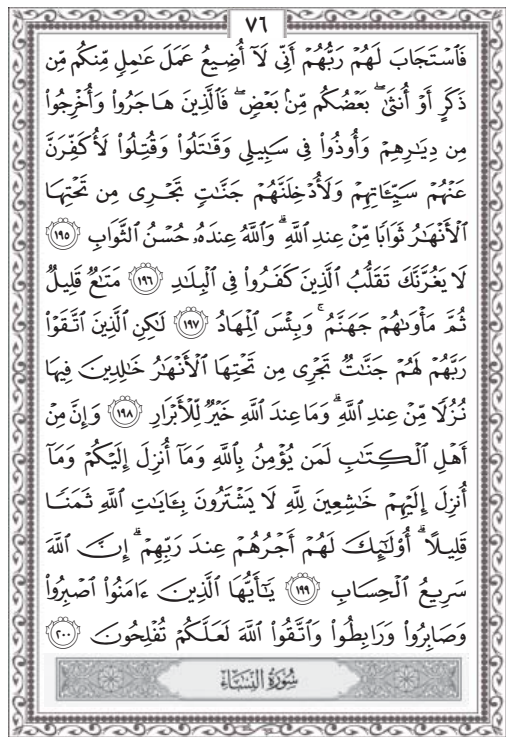 ٧٦
فَٱسْتَجَابَ لَهُمْ رَبُّهُمْ أَنِّى لَآ أُضِيعُ عَمَلَ عَٰمِلٍ مِّنكُم مِّن
ذَكَرٍ أَوْ أُنثَىٰ ۖ بَعْضُكُم مِّنۢ بَعْضٍ ۖ فَٱلَّذِينَ هَاجَرُوا۟ وَأُخْرِجُوا۟
مِن دِيَٰرِهِمْ وَأُوذُوا۟ فِى سَبِيلِى وَقَٰتَلُوا۟ وَقُتِلُوا۟ لَأُكَفِّرَنَّ
عَنْهُمْ سَيِّـَٔاتِهِمْ وَلَأُدْخِلَنَّهُمْ جَنَّٰتٍ تَجْرِى مِن تَحْتِهَا
ٱلْأَنْهَٰرُ ثَوَابًا مِّنْ عِندِ ٱللَّهِ ۗ وَٱللَّهُ عِندَهُۥ حُسْنُ ٱلثَّوَابِ ١٩٥
لَا يَغُرَّنَّكَ تَقَلُّبُ ٱلَّذِينَ كَفَرُوا۟ فِى ٱلْبِلَٰدِ ١٩٦ مَتَٰعٌ قَلِيلٌ
ثُمَّ مَأْوَىٰهُمْ جَهَنَّمُ ۚ وَبِئْسَ ٱلْمِهَادُ ١٩٧ لَٰكِنِ ٱلَّذِينَ ٱتَّقَوْا۟
رَبَّهُمْ لَهُمْ جَنَّٰتٌ تَجْرِى مِن تَحْتِهَا ٱلْأَنْهَٰرُ خَٰلِدِينَ فِيهَا
نُزُلًا مِّنْ عِندِ ٱللَّهِ ۗ وَمَا عِندَ ٱللَّهِ خَيْرٌ لِّلْأَبْرَارِ ١٩٨ وَإِنَّ مِنْ
أَهْلِ ٱلْكِتَٰبِ لَمَن يُؤْمِنُ بِٱللَّهِ وَمَآ أُنزِلَ إِلَيْكُمْ وَمَآ
أُنزِلَ إِلَيْهِمْ خَٰشِعِينَ لِلَّهِ لَا يَشْتَرُونَ بِـَٔايَٰتِ ٱللَّهِ ثَمَنًا
قَلِيلًا ۗ أُو۟لَٰٓئِكَ لَهُمْ أَجْرُهُمْ عِندَ رَبِّهِمْ ۗ إِنَّ ٱللَّهَ
سَرِيعُ ٱلْحِسَابِ ١٩٩ يَٰٓأَيُّهَا ٱلَّذِينَ ءَامَنُوا۟ ٱصْبِرُوا۟
وَصَابِرُوا۟ وَرَابِطُوا۟ وَٱتَّقُوا۟ ٱللَّهَ لَعَلَّكُمْ تُفْلِحُونَ ٢٠٠
سُورَةُ النِّسَاءِ